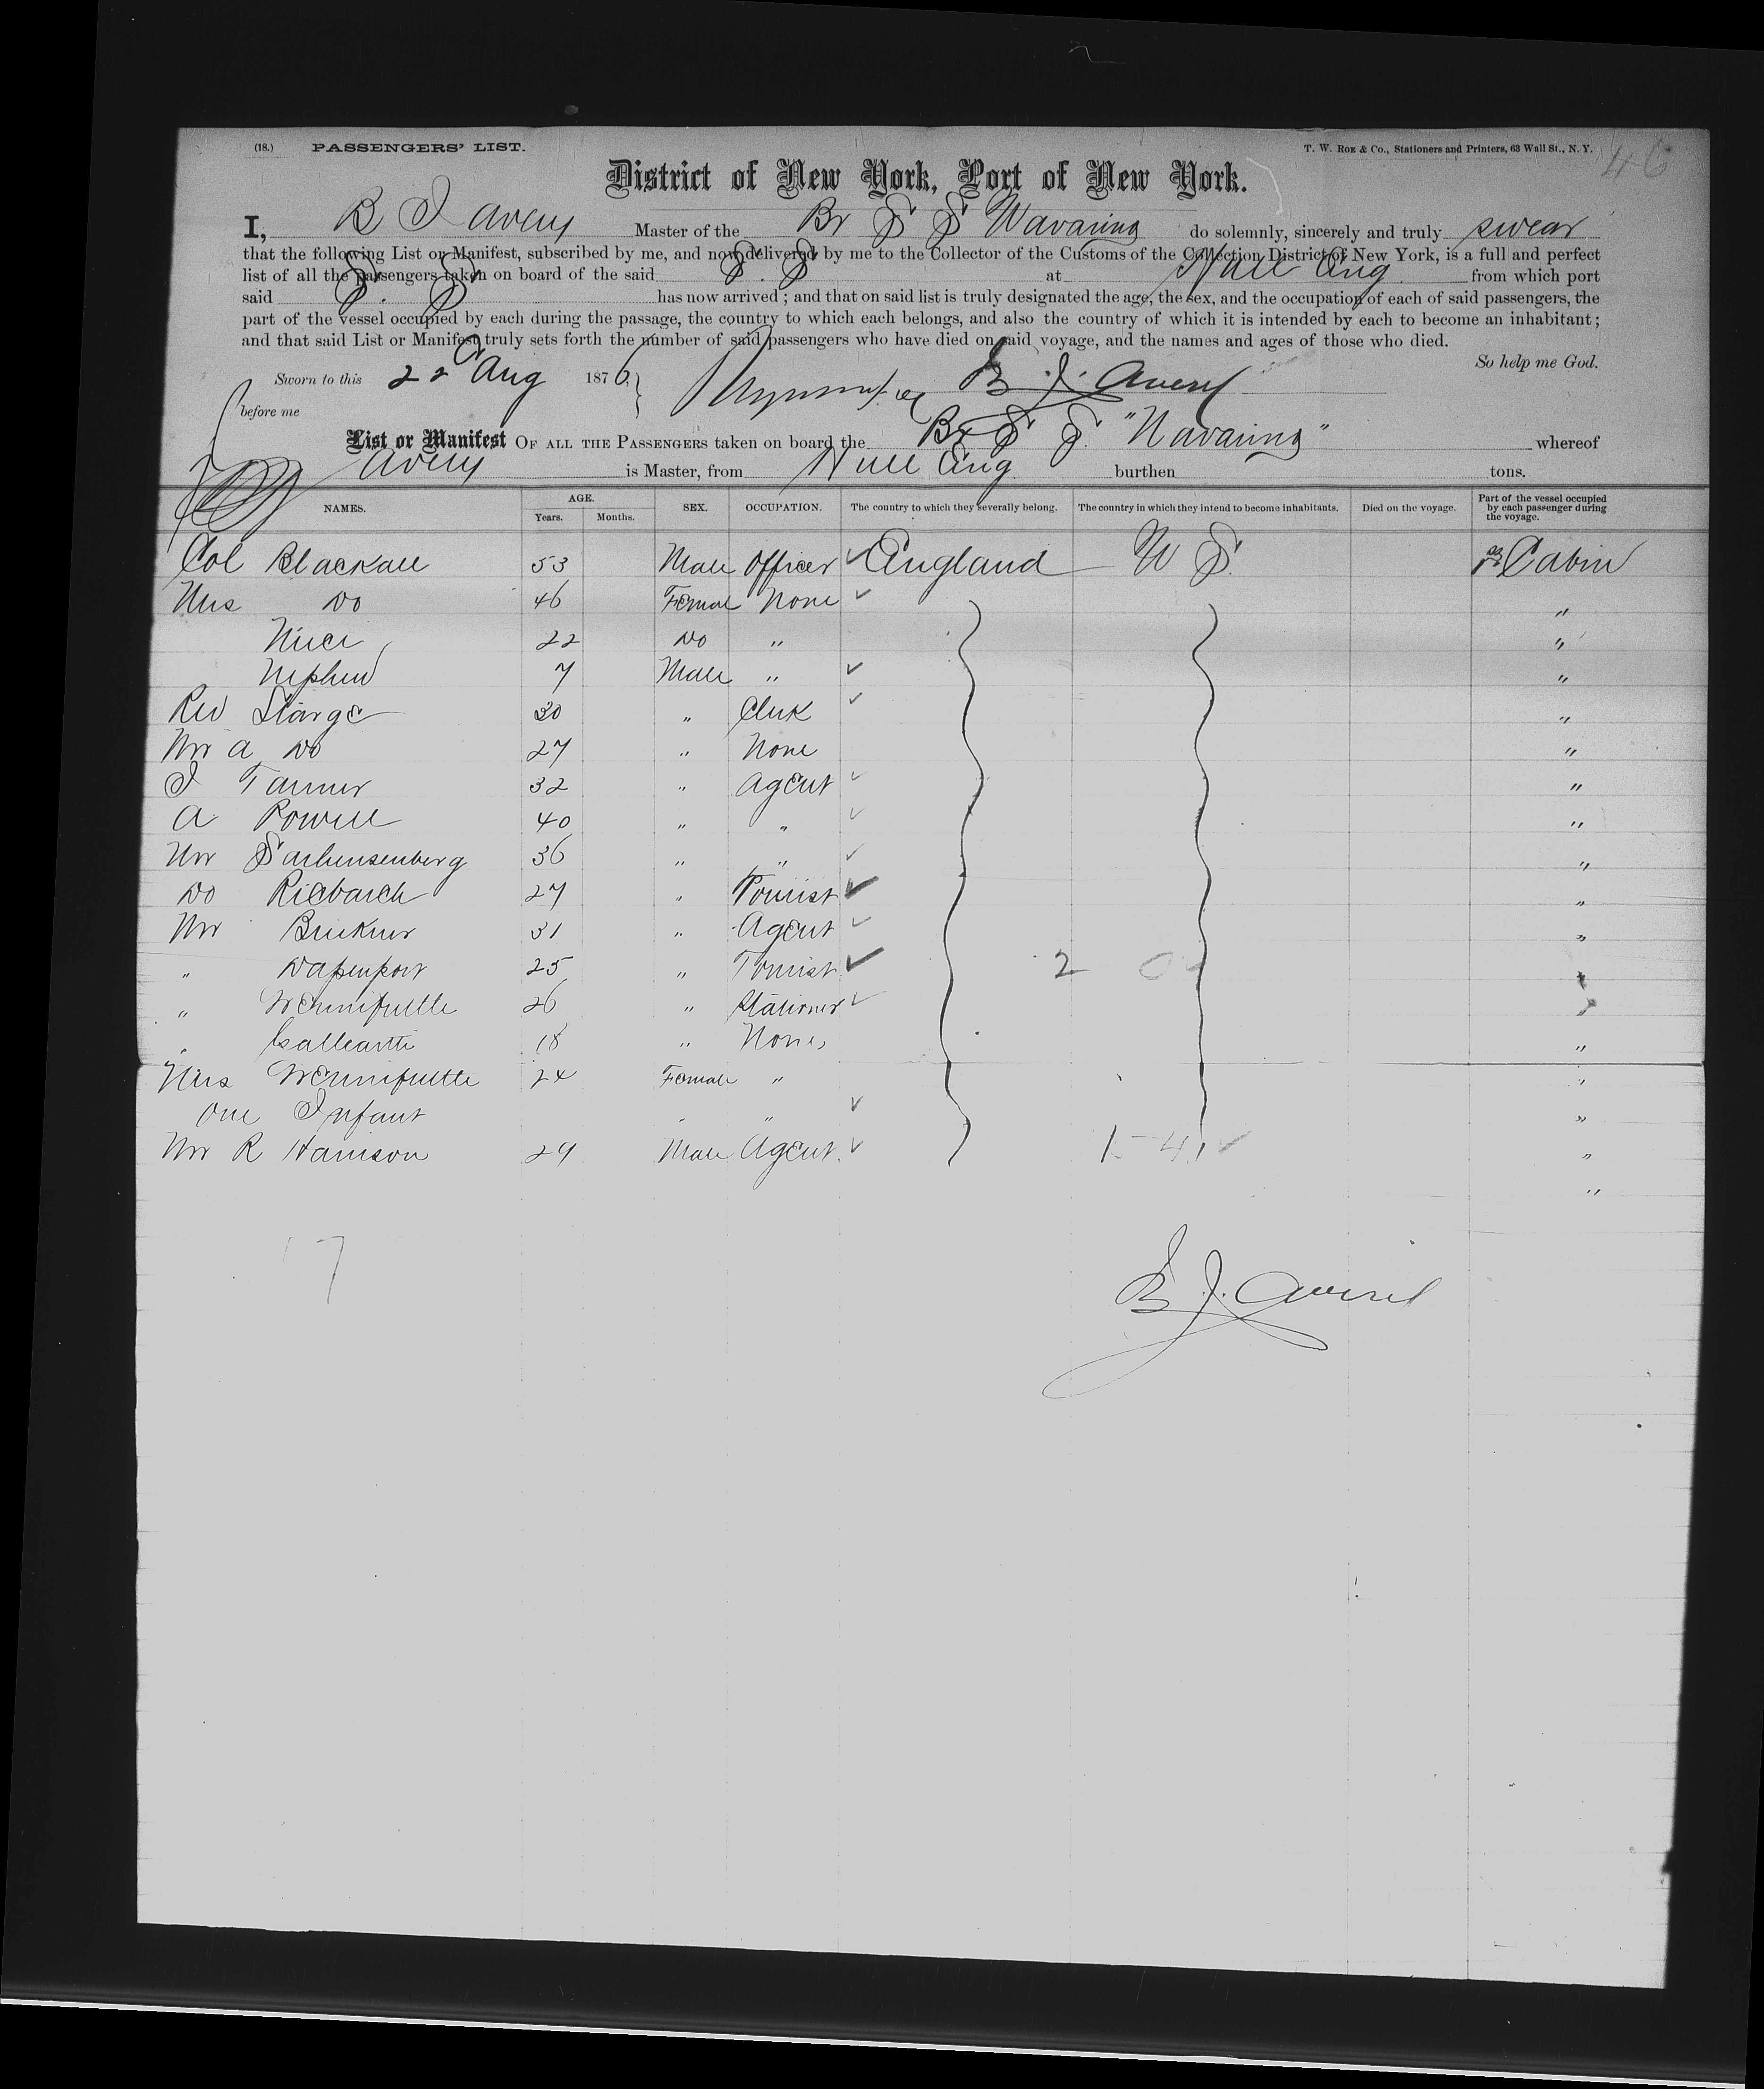 (18.) PASSENGERS' LIST. T. W. Roe & Co., Stationers and Printers, 63 Wall St., N. Y. 46
District of New York, Port of New York.
I, B J Avery Master of the Br S S Navarino do solemnly, sincerely and truly swear
that the following List or Manifest, subscribed by me, and now delivered by me to the Collector of the Customs of the Collection District of New York, is a full and perfect
list of all the passengers taken on board of the said S. S at Hull Eng from which port
said S. S has now arrived; and that on said list is truly designated the age, the sex, and the occupation of each of said passengers, the
part of the vessel occupied by each during the passage, the country to which each belongs, and also the country of which it is intended by each to become an inhabitant;
and that said List or Manifest truly sets forth the number of said passengers who have died on said voyage, and the names and ages of those who died.
So help me God.
Sworn to this 22 Aug 1876 B. J. Averil
before me
List or Manifest OF ALL THE PASSENGERS taken on board the Br S S. "Navarino" whereof
Avery is Master, from Hull Eng burthen tons.
NAMES. AGE. Years. Months. SEX. OCCUPATION. The country to which they severally belong. The country in which they intend to become inhabitants. Died on the voyage. Part of the vessel occupied by each passenger during the voyage.
Col Blackall 53 Male Officer England U S. Cabin
Mrs Do 46 Female None "
Niece 22 Do " "
Nephew 7 Male " "
Rev Starge 30 " Clerk "
Mr A Do 27 " None "
J Tanner 32 " Agent "
A Powell 40 " " "
Mr Sachensenberg 36 " " "
Do Richarch 27 " Tourist "
Mr Bruckner 31 " Agent "
" Dapenport 25 " Tourist " 2 0
" 26 " Stationer "
" 18 " None "
Mrs 24 Female " "
One Infant " "
Mr R Harrison 29 Male Agent 1-41 "
"
17
B J. Averil